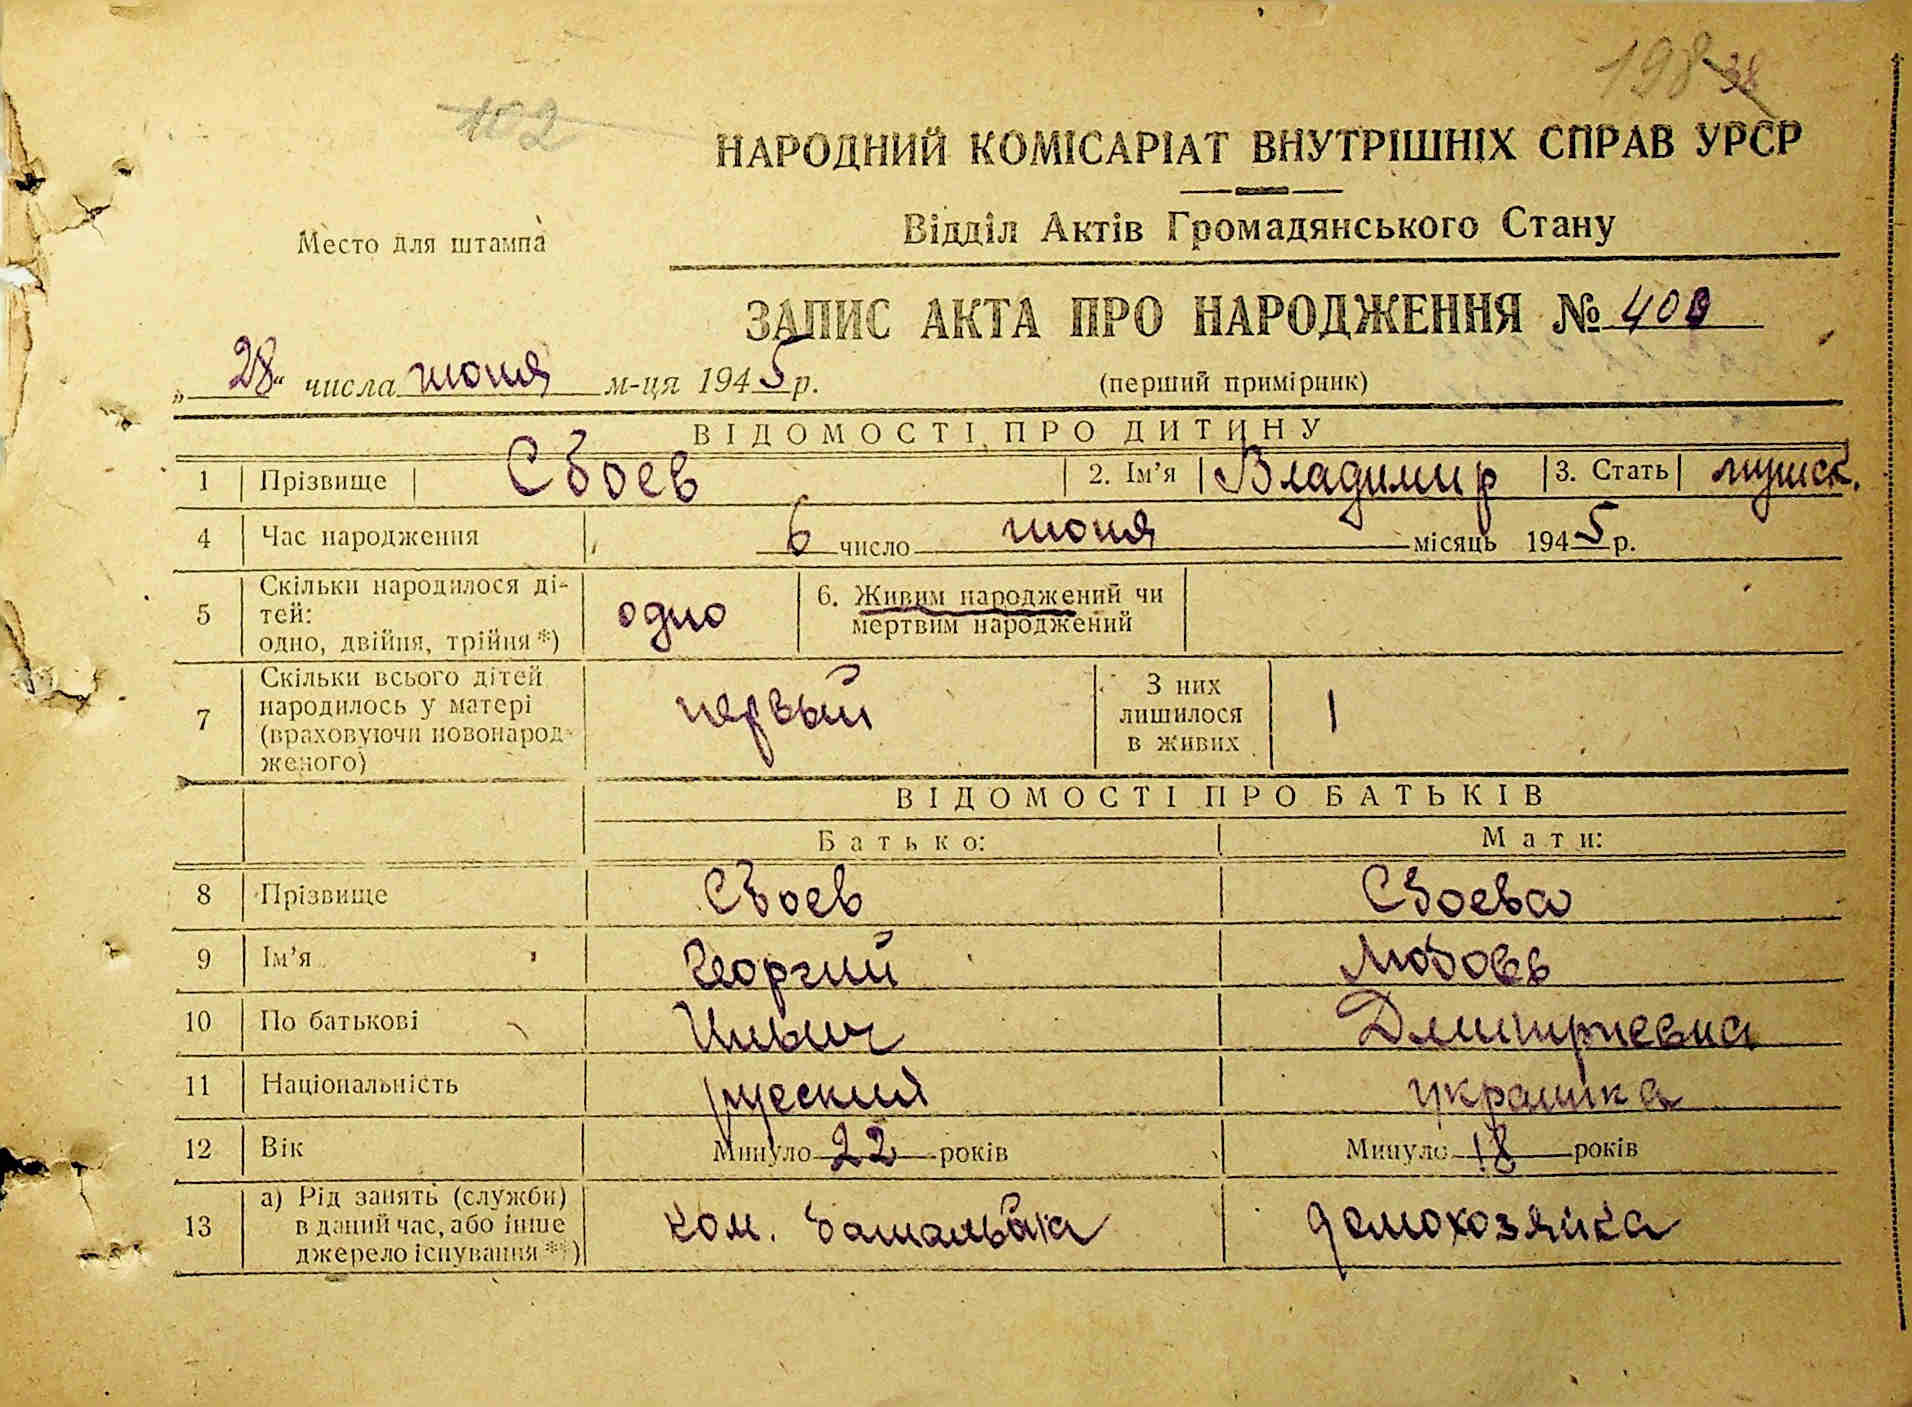 198 38
102
НАРОДНИЙ КОМІСАРІАТ ВНУТРІШНІХ СПРАВ УРСР
Место для штампа
Відділ Актів Громадянського Стану
ЗАПИС АКТА ПРО НАРОДЖЕННЯ № 400
„28“ числа июня м-ця 1945 р.
(перший примірник)
ВІДОМОСТІ ПРО ДИТИНУ
1 Прізвище Сбоев 2. Ім’я Владимир 3. Стать мужск.
4 Час народження 6 число июня місяць 1945 р.
5 Скільки народилося ді-
тей:
одно, двійня, трійня*) одно
6. Живим народжений чи
мертвим народжений
7 Скільки всього дітей
народилось у матері
(враховуючи новонарод-
женого) первый
З них
лишилося
в живих 1
ВІДОМОСТІ ПРО БАТЬКІВ
Батько: Мати:
8 Прізвище Сбоев Сбоева
9 Ім’я Георгий Любовь
10 По батькові Ильич Дмитриевна
11 Національність русский украинка
12 Вік Минуло 22 років Минуло 18 років
13 а) Рід занять (служби)
в даний час, або інше
джерело існування**) ком. батальона домохозяйка